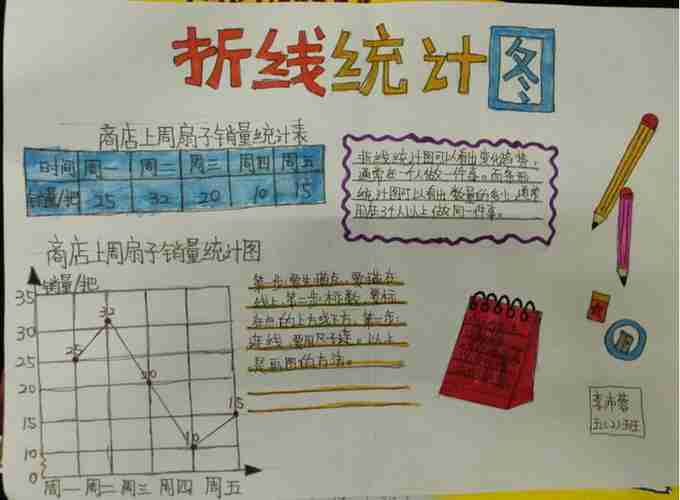 折线统计图
商店上周扇子销量统计表
时间 周一 周二 周三 周四 周五
销量/把 25 32 20 10 15
折线统计图可以看出变化趋势，
通常在一个人做一件事。而条形
统计图可以看出数量的多少，通常
用在3个人以上做同一件事。
商店上周扇子销量统计图
销量/把
35
30
25
20
15
10
0
25
32
20
10
15
周一 周二 周三 周四 周五
第一步要先描点，要描在
线上，第二步：标数，要标
在点的上方或下方，第三步：
连线，要用尺子连。以上
是画图的方法。
五(2)班